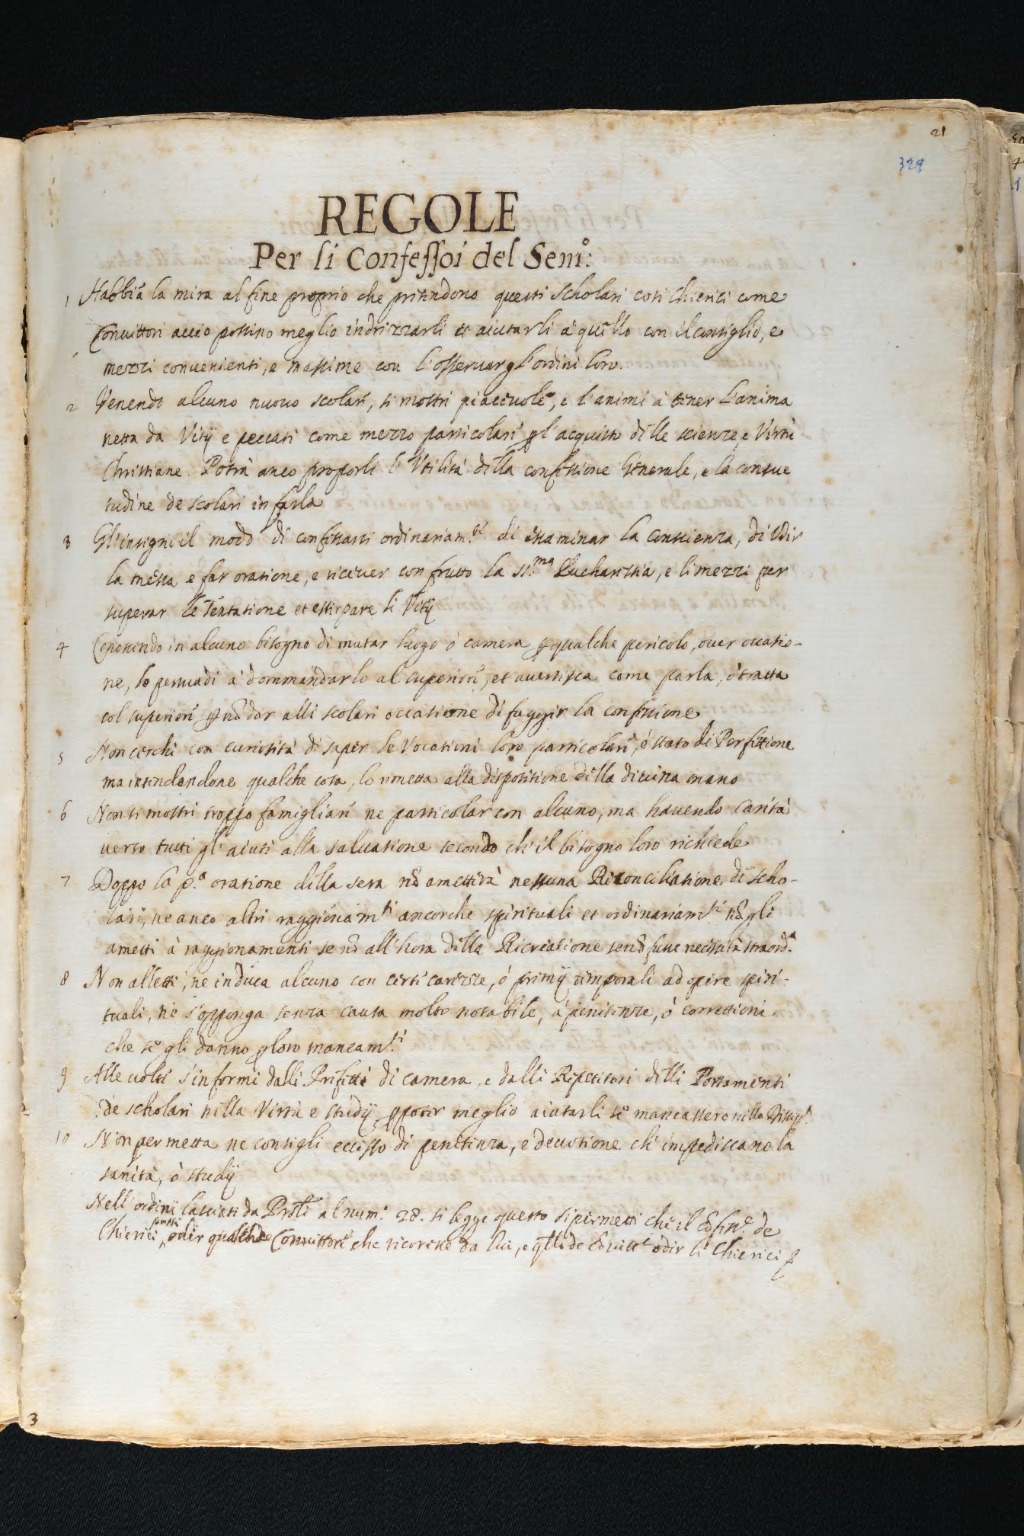 21
329
REGOLE
Per li Confessoi del Semº:
1 Habbia la mira al fine proprio che pretendono questi scholari cosi chierici come
Convittori accio possino meglio indrizzarli et aiutarli à quello con il consiglio, e
mezzi convenienti, e massime con l'osservar gl'ordini loro.
2 Venendo alcuno nuovo scolare, si mostri piacevole, e l'animi à tener l'anima
netta da Vitij e peccati come mezzo particolare p l'acquisto delle scienze, e Virtù
Christiane. Potrà anco proporli l'Utilità della confessione Generale, e la consue
tudine de scolari in farla
3 Gl'insegni il modo di confessarsi ordinariam.te di essaminar la conscienza, di Udir
la messa e far oratione, e ricever con frutto la ss.ma Eucharistia, e li mezzi per
superar le Tentatione et estirpare li Vitij
4 Conoscendo in alcuno bisogno di mutar luogo ò camera p qualche pericolo, over occasio-
ne, lo persuadi à dommandarlo al superiore, et avertisca come parla, ò tratta
col superiore p nõ dar alli scolari occasione di fuggir la confessione
5 Non cerchi con curiosità di saper le Vocationi loro particolari, ò stato di Perfettione
ma intendendone qualche cosa, lo rimetta alla dispositione della divina mano
6 Non si mostri troppo famigliare ne particolar con alcuno, ma havendo carità
verso tutti gl'aiuti alla salvatione secondo ch'il bisogno loro richiede
7 Doppo la p.a oratione della sera nõ ametterà nessuna Riconciliatione di scho-
lari, ne anco altri raggionam.ti ancorche spirituali et ordinariam.te nõ gli
ametti à raggionamenti se nõ all'hora della Ricreatione se nõ fusse necessità straord.a
8 Non alletti, ne induca alcuno con certi carezze, ò premij temporali ad opere spiri-
tuali, ne s'opponga senza causa molto notabile, à penitenze, ò correttioni
che se gli danno p loro mancam.ti
9 Alle volte s'informi dalli Prefetti di camera, e dalli Repetitori delli Portamenti
de scholari nella Virtù e studij p poter meglio aiutarli se mancassero nella
10 Non permetta ne consigli eccesso di penitenza, e devotione ch'impediscano la
sanità, ò studij
Nell'ordini lasciati da al num.º 28. si legge questo si permetti che il cõfess.e de
Chierici possi odir qualche Convittore che ricorresse da lui, e qllo de Cõvitt.i odir li Chierici p
3